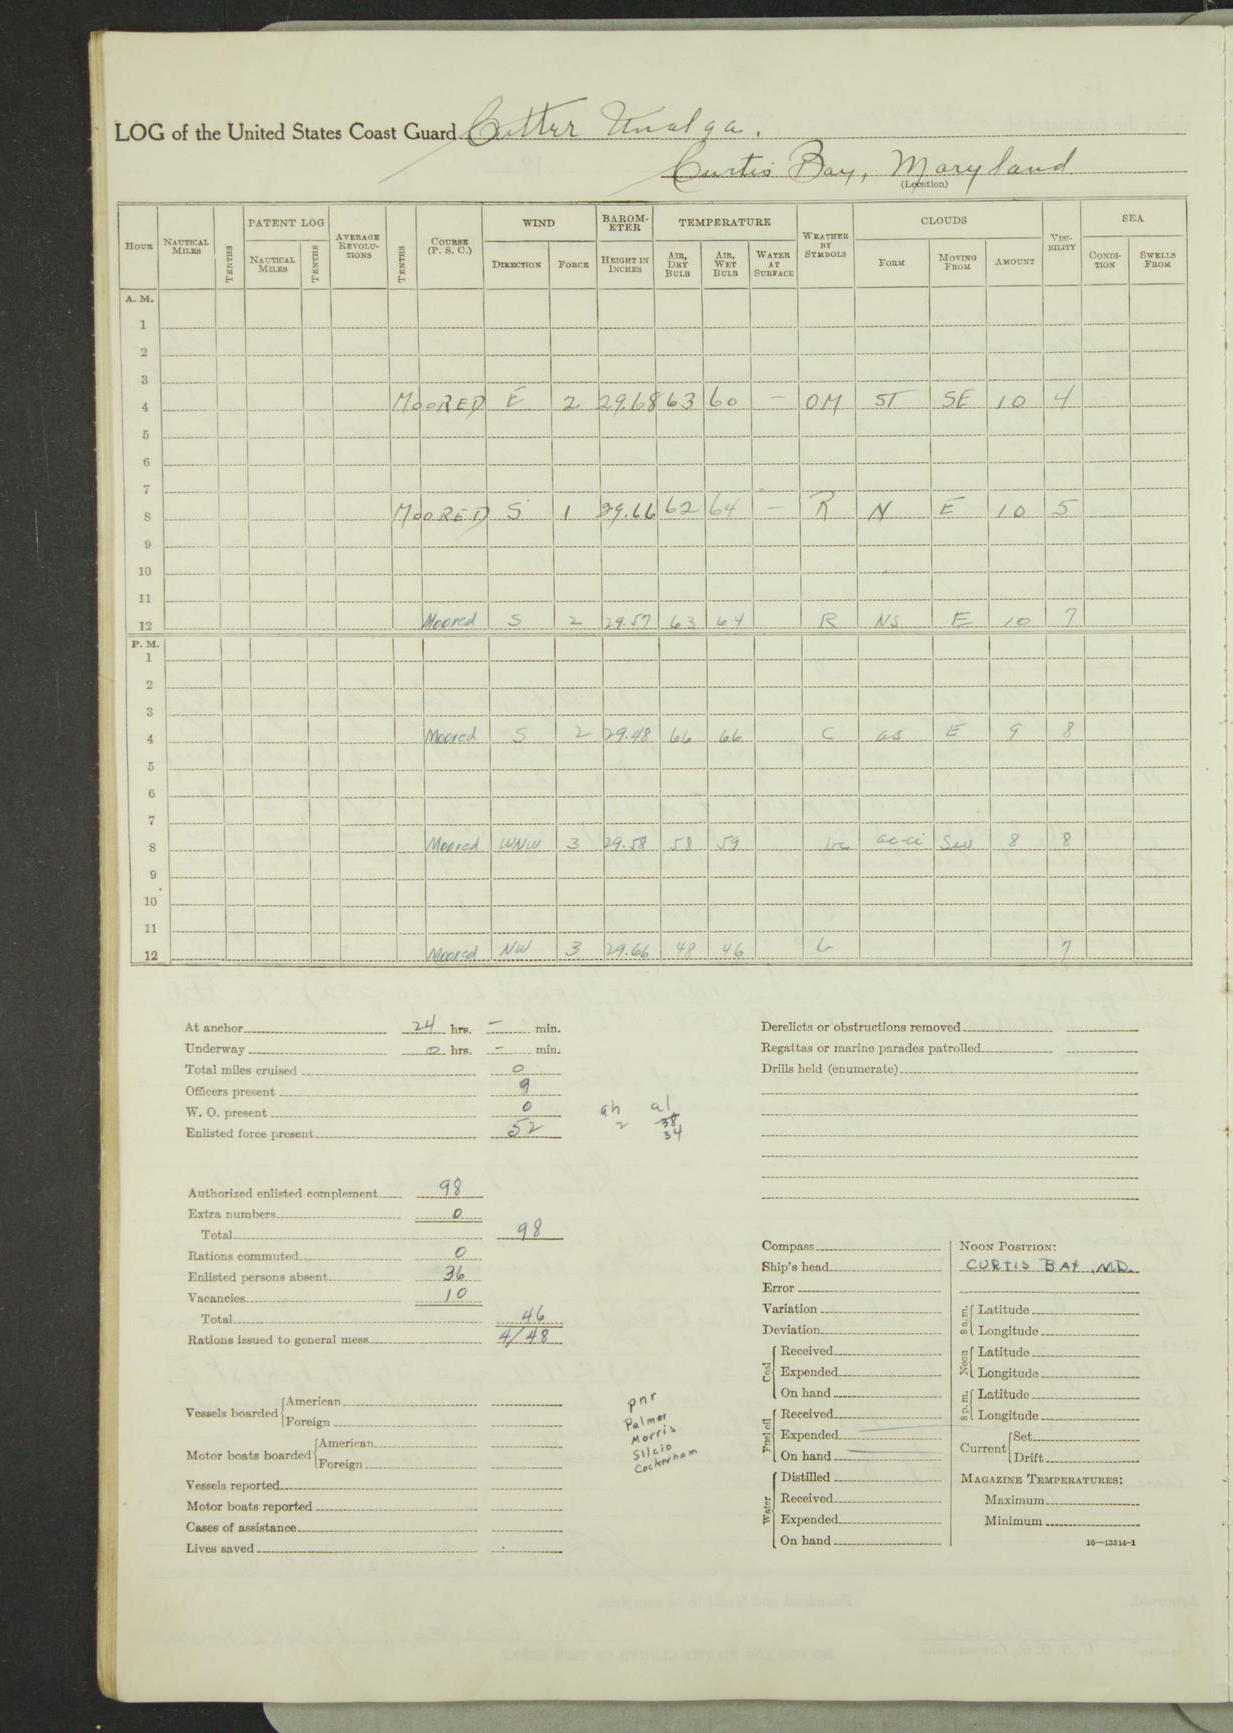 LOG of the United States Coast Guard Cutter Unalga.
Curtis Bay, Maryland
(Location)
HOUR NAUTICAL MILES TENTHS PATENT LOG NAUTICAL MILES TENTHS AVERAGE REVOLU-TIONS TENTHS COURSE (P. S. C.) WIND DIRECTION FORCE BAROM-ETER HEIGHT IN INCHES TEMPERATURE AIR, DRY BULB AIR, WET BULB WATER AT SURFACE WEATHER BY SYMBOLS CLOUDS FORM MOVING FROM AMOUNT VISI-BILITY SEA CONDI-TION SWELLS FROM
A. M.
1
2
3
4 MOORED E 2 29.68 63 60 — OM ST SE 10 4
5
6
7
8 MOORED S 1 29.66 62 64 — R N E 10 5
9
10
11
12 Moored S 2 29.57 63 64 R NS E 10 7
P. M.
1
2
3
4 Moored S 2 29.48 66 66 C as E 9 8
5
6
7
8 Moored WNW 3 29.58 58 59 bc ac-ci SW 8 8
9
10
11
12 Moored NW 3 29.66 48 46 b 7
At anchor 24 hrs. — min.
Underway 0 hrs. — min.
Total miles cruised 0
Officers present 9
W. O. present 0
Enlisted force present 52
ah al
2 38
34
Authorized enlisted complement 98
Extra numbers 0
Total 98
Rations commuted 0
Enlisted persons absent 36
Vacancies 10
Total 46
Rations issued to general mess 4/48
Vessels boarded American
Foreign
Motor boats boarded American
Foreign
Vessels reported
Motor boats reported
Cases of assistance
Lives saved
pnr
Palmer
Morris
Silcio
Cockerham
Derelicts or obstructions removed
Regattas or marine parades patrolled
Drills held (enumerate)
Compass
Ship's head
Error
Variation
Deviation
Coal Received
Expended
On hand
Fuel oil Received
Expended
On hand
Water Distilled
Received
Expended
On hand
NOON POSITION:
CURTIS BAY, MD.
8 a.m. Latitude
Longitude
Noon Latitude
Longitude
8 p.m. Latitude
Longitude
Current Set
Drift
MAGAZINE TEMPERATURES:
Maximum
Minimum
16—13314-1